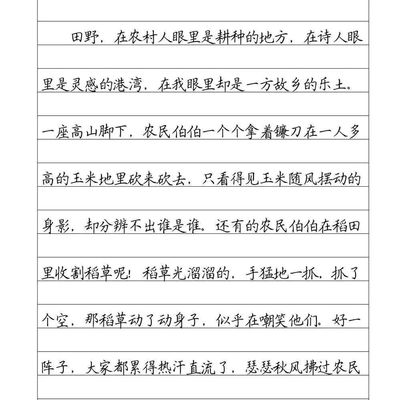 田野，在农村人眼里是耕种的地方，在诗人眼
里是灵感的港湾，在我眼里却是一方故乡的乐土。
一座高山脚下，农民伯伯一个个拿着镰刀在一人多
高的玉米地里砍来砍去，只看得见玉米随风摆动的
身影，却分辨不出谁是谁。还有的农民伯伯在稻田
里收割稻草呢！稻草光溜溜的，手猛地一抓，抓了
个空，那稻草动了动身子，似乎在嘲笑他们。好一
阵子，大家都累得热汗直流了，瑟瑟秋风拂过农民